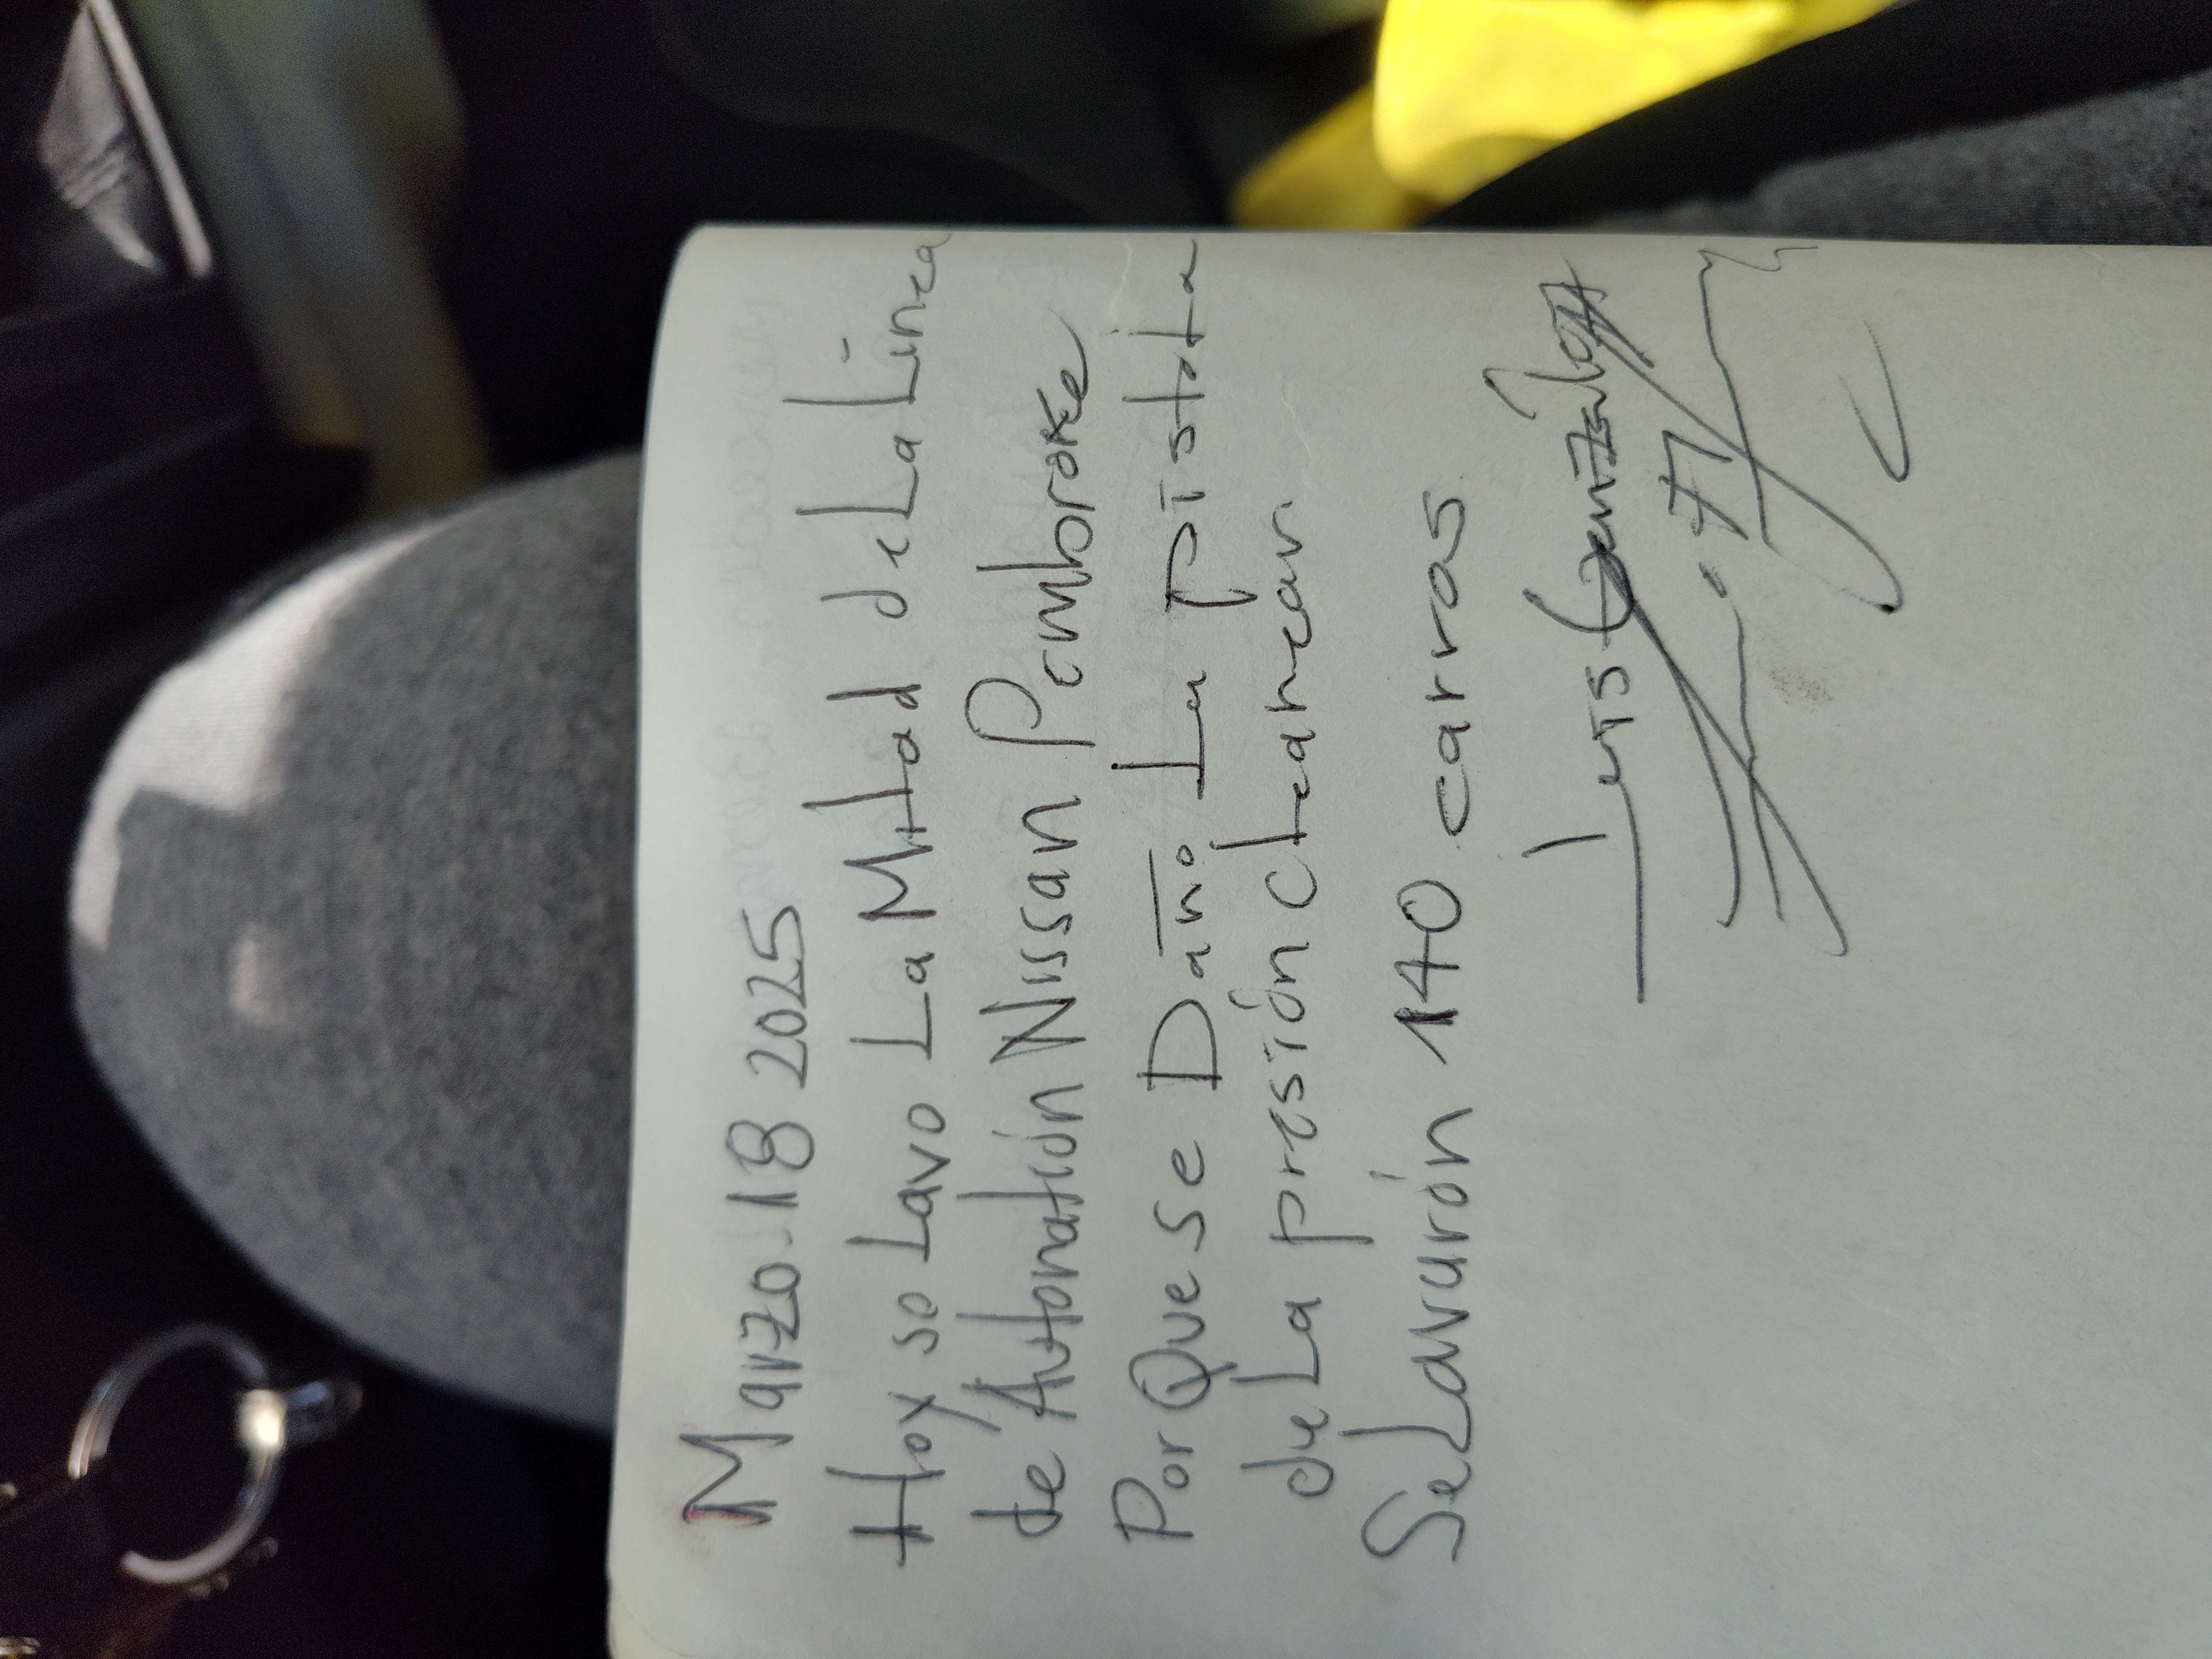 Marzo-18 2025
Hoy se Lavo La Mitad de La Linea
de Autonatión Nissan Pembroke
Por Que se Daño La pistola
de La presión cleanean
Se Lavarón 140 carros
Luis González